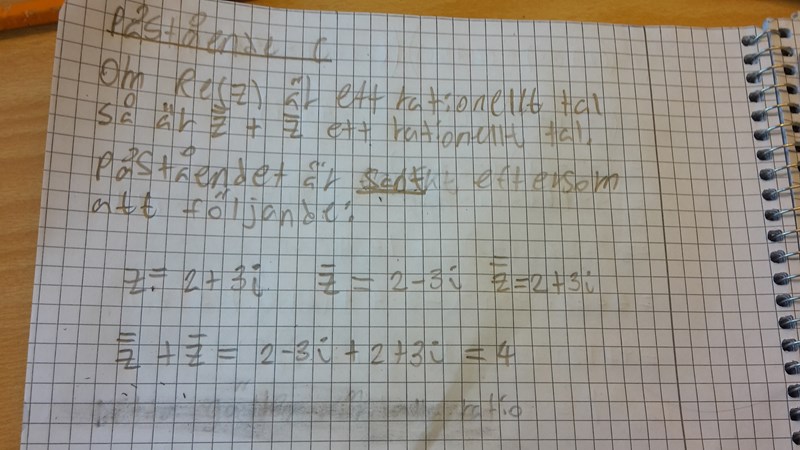 Påstående C
Om Re(z) är ett rationellt tal
så är z̿ + z̄ ett rationellt tal.
Påståendet är sant eftersom
att följande:
z = 2+3i z̄ = 2-3i z̿ = 2+3i
z̿ + z̄ = 2-3i + 2+3i = 4
ratio